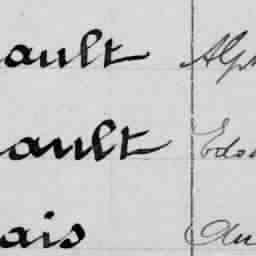 ault Alph
ault Edo
ais Au